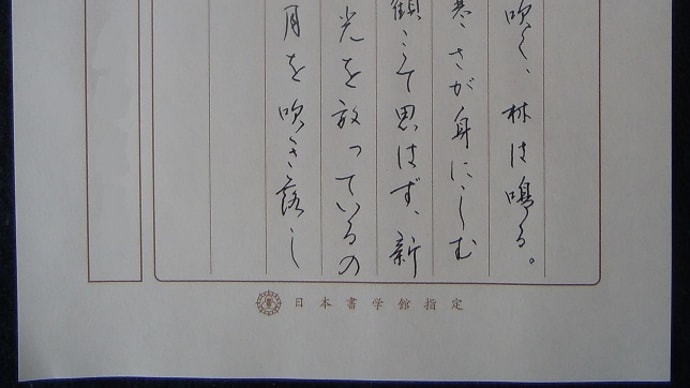 吹く、林は鳴る。
寒さが身にしむ
顧みて思はず、新
光を放っているの
月を吹き落し
日本書学館指定